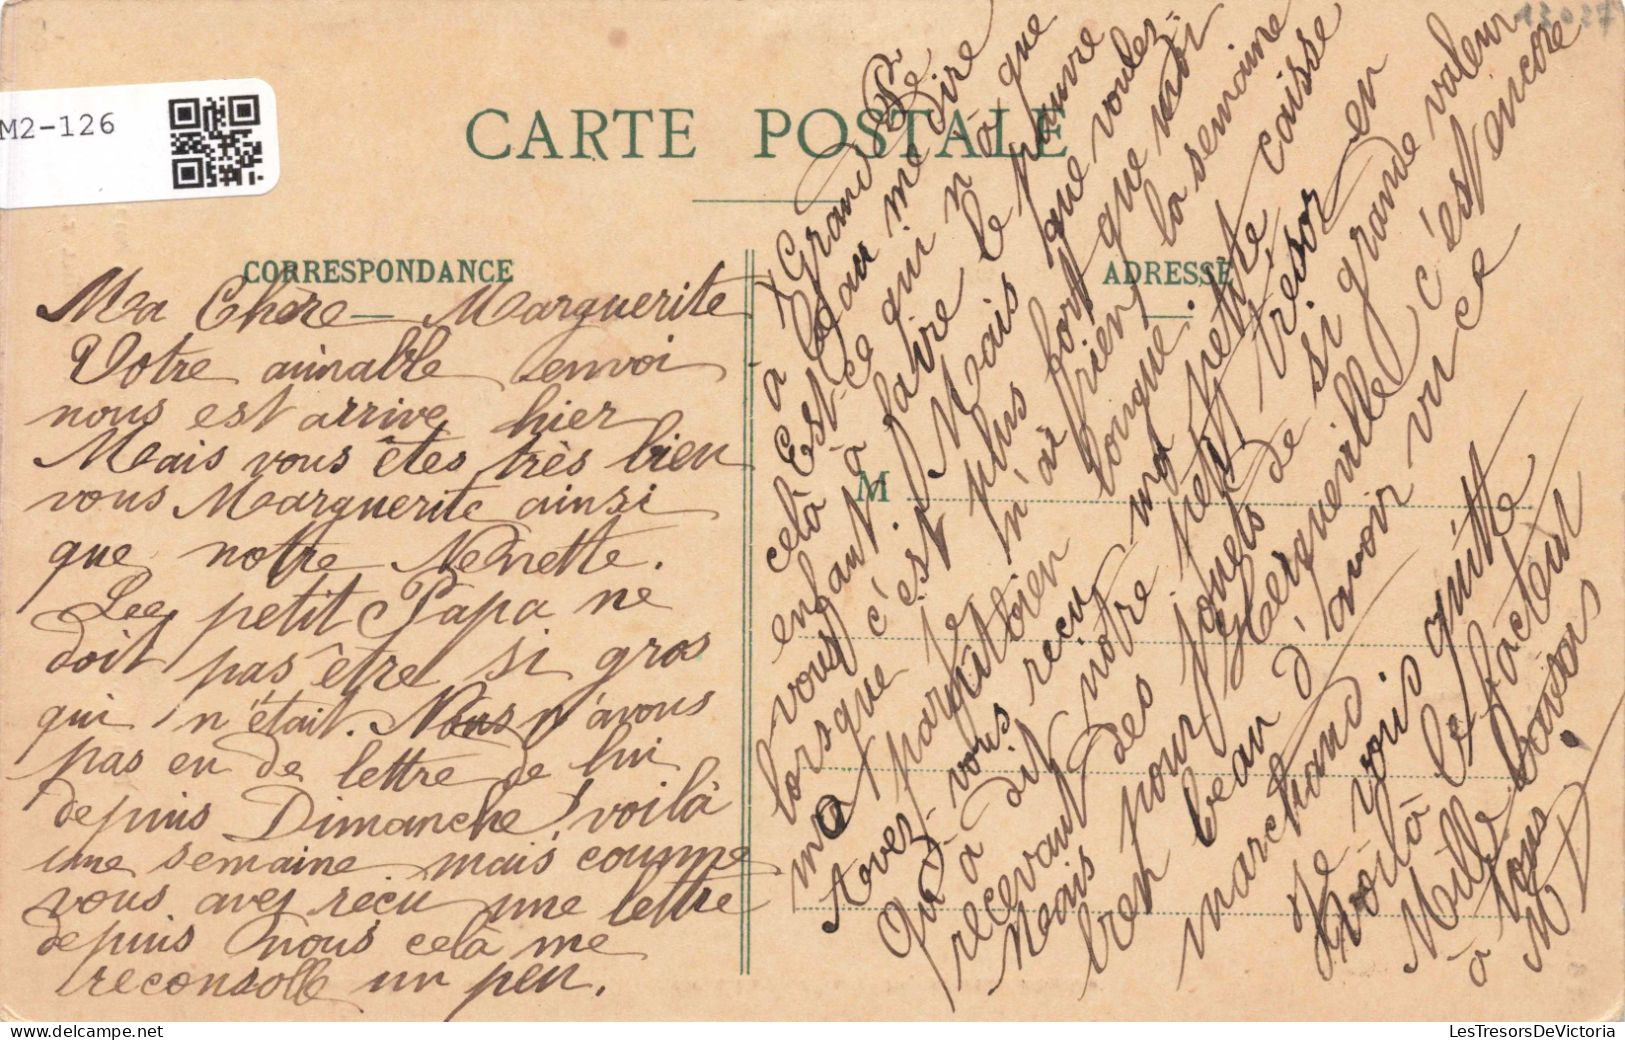 M2-126
CARTE POSTALE
CORRESPONDANCE
ADRESSE
M
Ma Chère Marguerite
Votre aimable envoi
nous est arrive hier
Mais vous êtes très bien
vous Marguerite ainsi
que notre Nenette.
Le petit Papa ne
doit pas être si gros
qui n'était. Nous n'avous
pas eu de lettre de lui
depuis Dimanche! voilà
une semaine mais comme
vous avez reçu une lettre
depuis nous celà me
reconsolle un peu.
à Grand
Est-ce qui n'a que
celà à faire le pauvre
enfant! Mais que voulez-
vous c'est plus fort que moi
lorsque je n'ai rien la semaine
me parait bien longue.
Avez-vous reçu ma petite caisse
Qu'a dit notre petit trésor en
recevant des jouets de si grande valeur
Mais pour Herqueville c'est encore
bien beau d'avoir vu ce
marchand
Je vous quitte
voilà le facteur
Mille baisers
à vous
M
LesTresorsDeVictoria